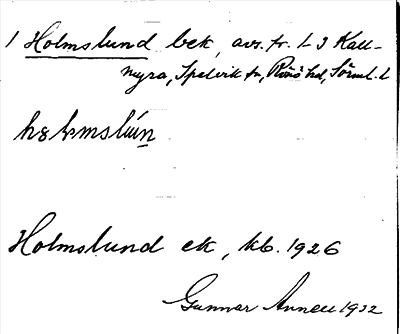 1 Holmslund bek, avs. fr. 1-3 Kall-
myra, Spelvik sn, Rönö hd, Sörml. l
Holmslund ek, kb. 1926
Gunnar 1932